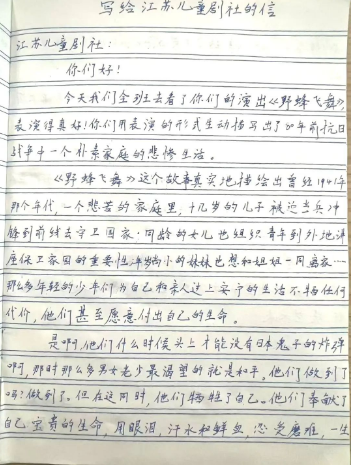 写给江苏儿童剧社的信
江苏儿童剧社:
你们好!
今天我们全班去看了你们的演出《野蜂飞舞》,
表演得真好!你们用表演的形式生动描写出了80年前抗日
战争中一个朴素家庭的悲惨生活。
《野蜂飞舞》这个故事真实地描绘出曾经1941年
那个年代,一个悲苦的家庭里,十几岁的儿子被迫当兵冲
锋到前线去守卫国家,同龄的女儿也组织青年到外地演
保卫家园的重要性,年龄尚小的妹妹也想和姐姐一同离家……
那么多年轻的少年们为自己和亲人过上安宁的生活不怕任何
代价,他们甚至愿意付出自己的生命。
是啊,他们什么时候头上才能没有日本鬼子的炸弹
啊,那时那么多男女老少最渴望的就是和平。他们做到了
吗?做到了。但在这同时,他们牺牲了自己。他们奉献了
自己宝贵的生命,用眼泪,汗水和鲜血,忍受磨难,一生